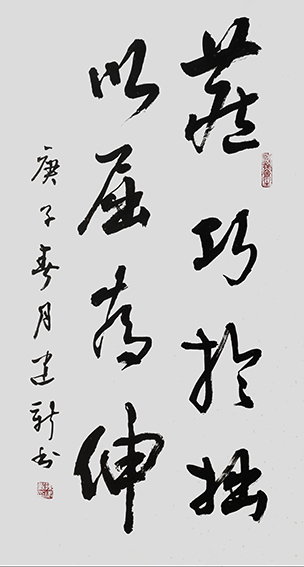 藏巧於拙
以屈為伸
庚子春月建新書